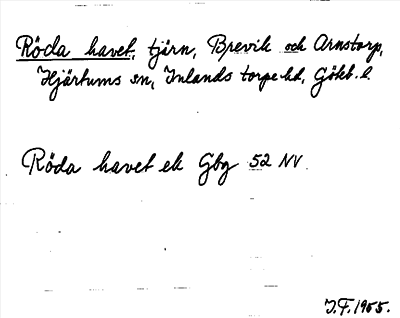 Röda havet, tjärn, Brevik och Arnstorp,
Hjärtums sn, Inlands torpe hd, Götb. l.
Röda havet ek Gbg 52 NV
J.F. 1955.